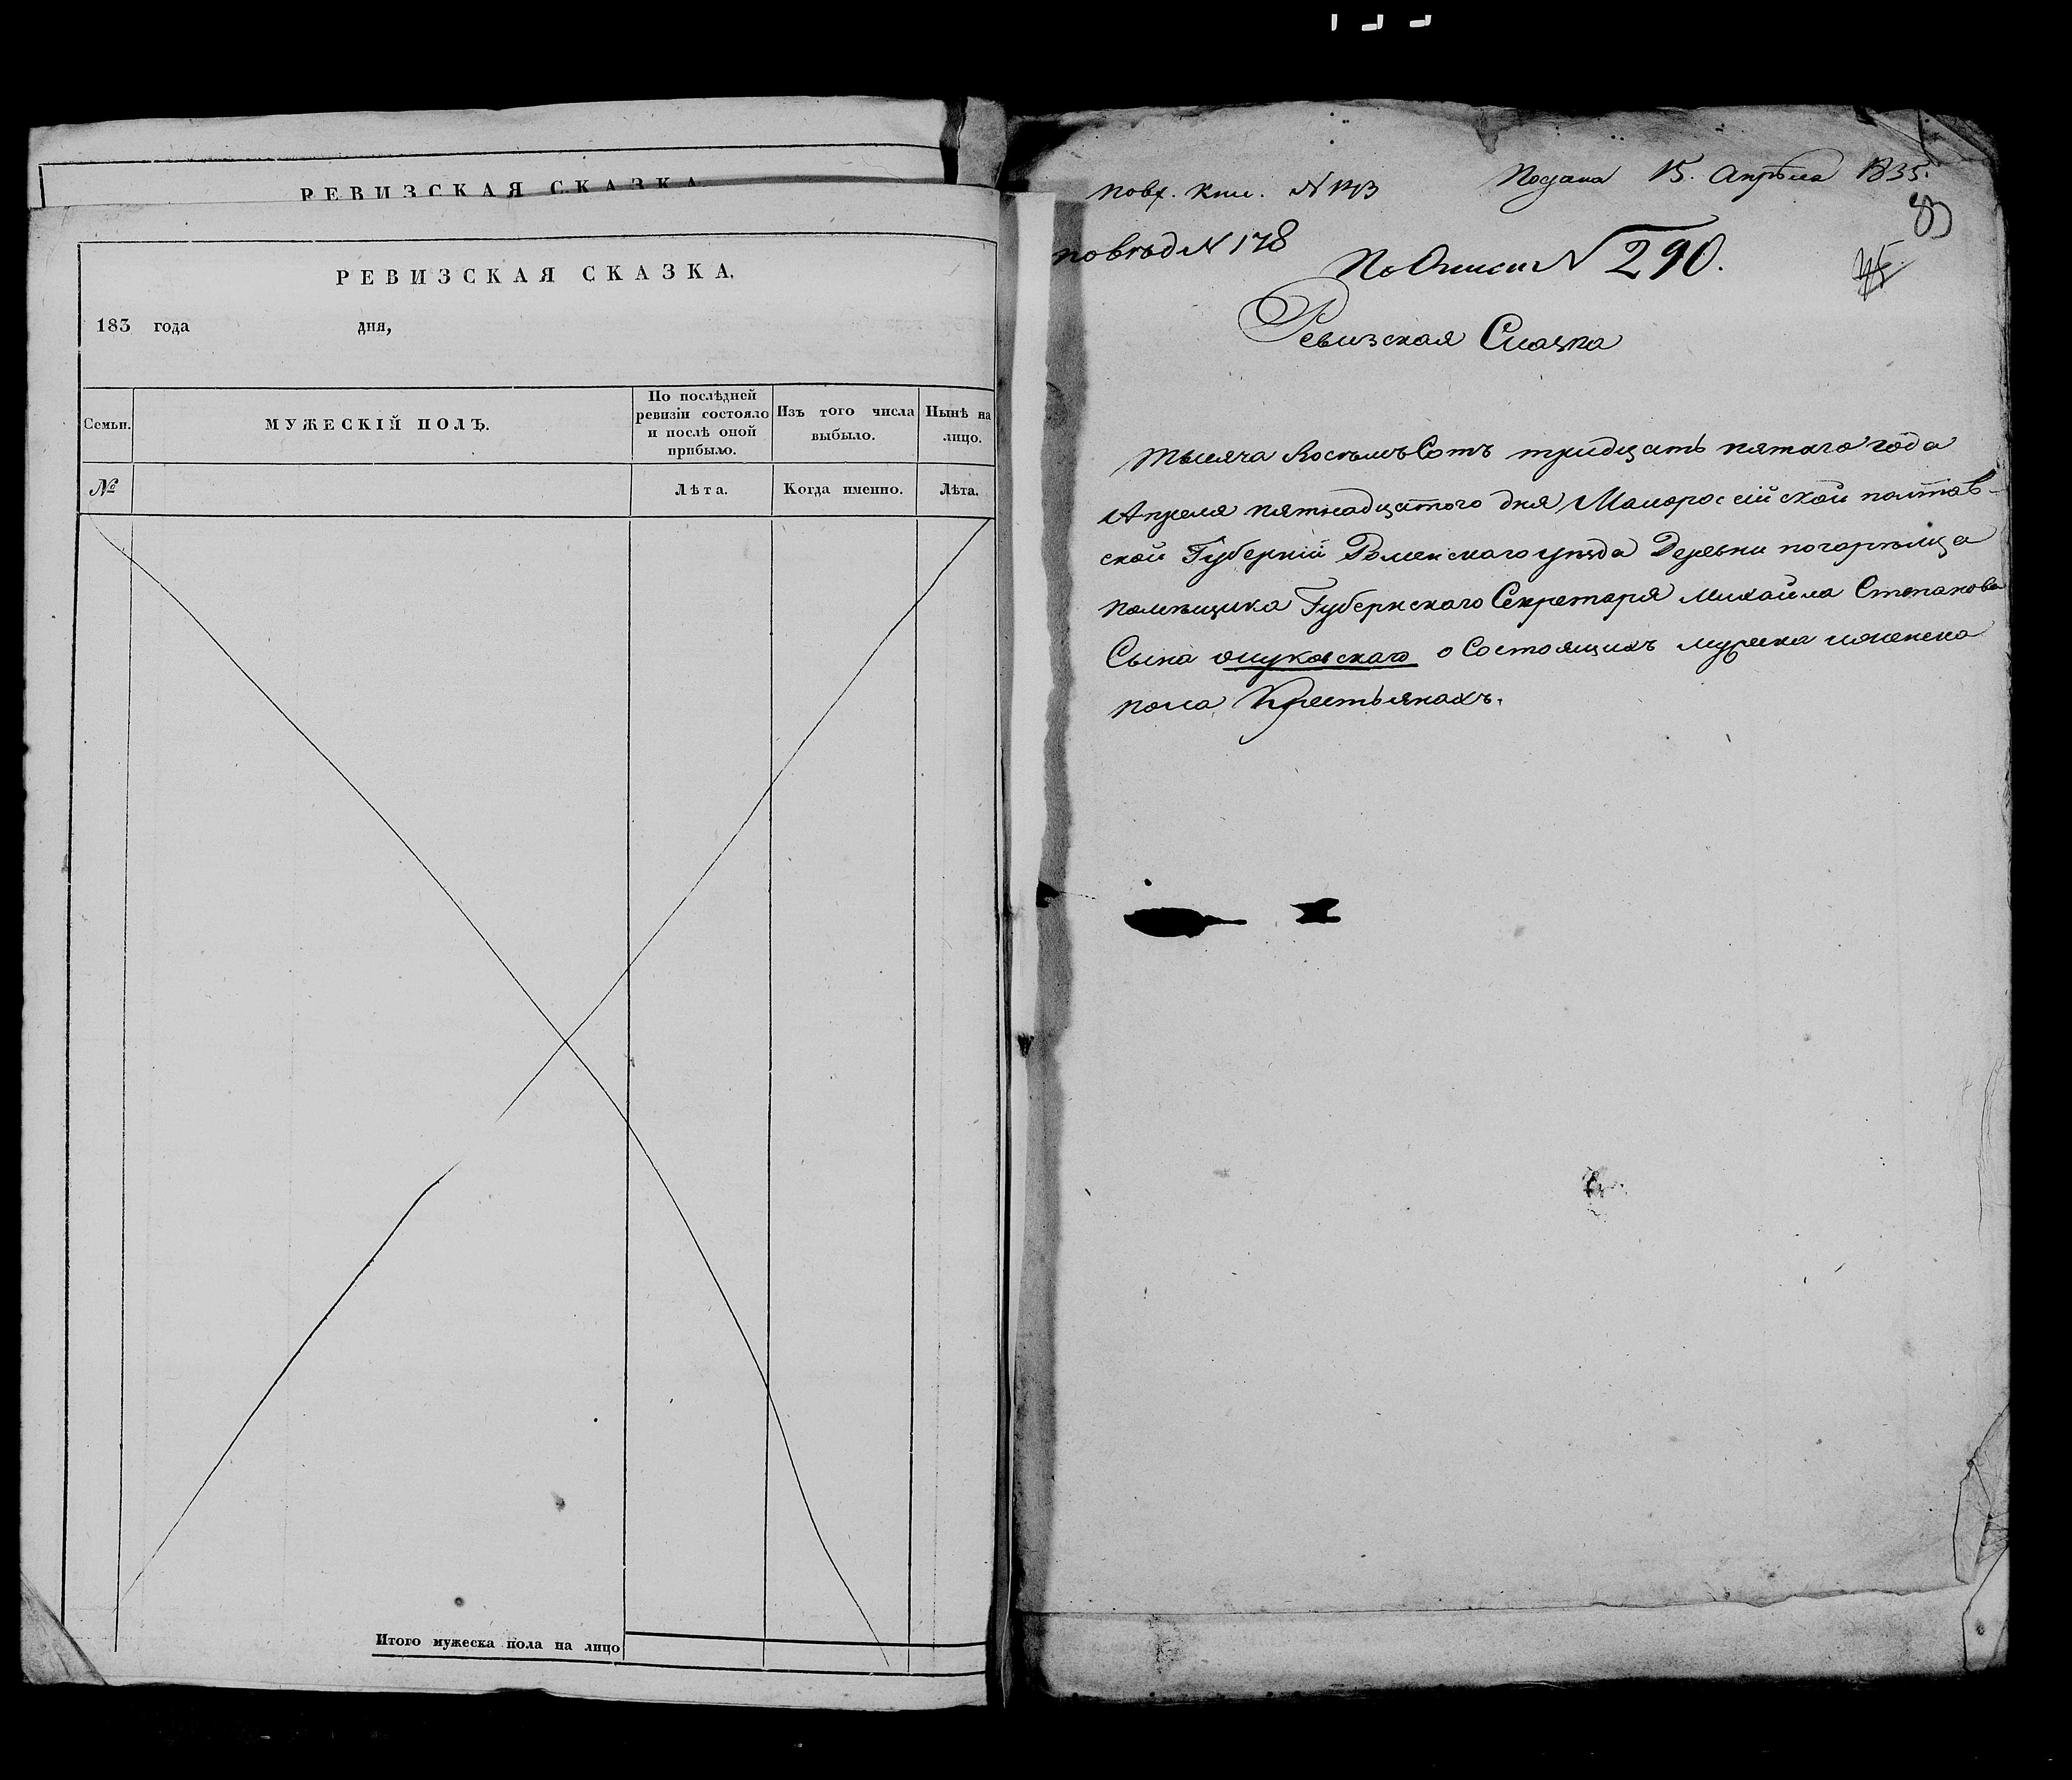 РЕВИЗСКАЯ СКАЗКА
РЕВИЗСКАЯ СКАЗКА.
183 года дня,
Семьи.
МУЖЕСКІЙ ПОЛЪ.
По послѣдней
ревизіи состояло
и послѣ оной
прибыло.
Изъ того числа
выбыло.
Нынѣ на
лицо.
№
Лѣта.
Когда именно.
Лѣта.
Итого мужеска пола на лицо
Подана 15. Апрѣля 1835.
83
№ 178
По Описи № 290.
Ревизская Сказка
Тысяча восемъ Сотъ тридцать пятаго года
Апреля пятнадцатого дня Малороссійской полтав-
ской Губерніи Роменскаго уѣзда Деревни погорѣлца
помѣщика Губернскаго Секретаря Михаила Степанова
Сына о Состоящихъ мужеска иженска
пола Крестьянахъ.